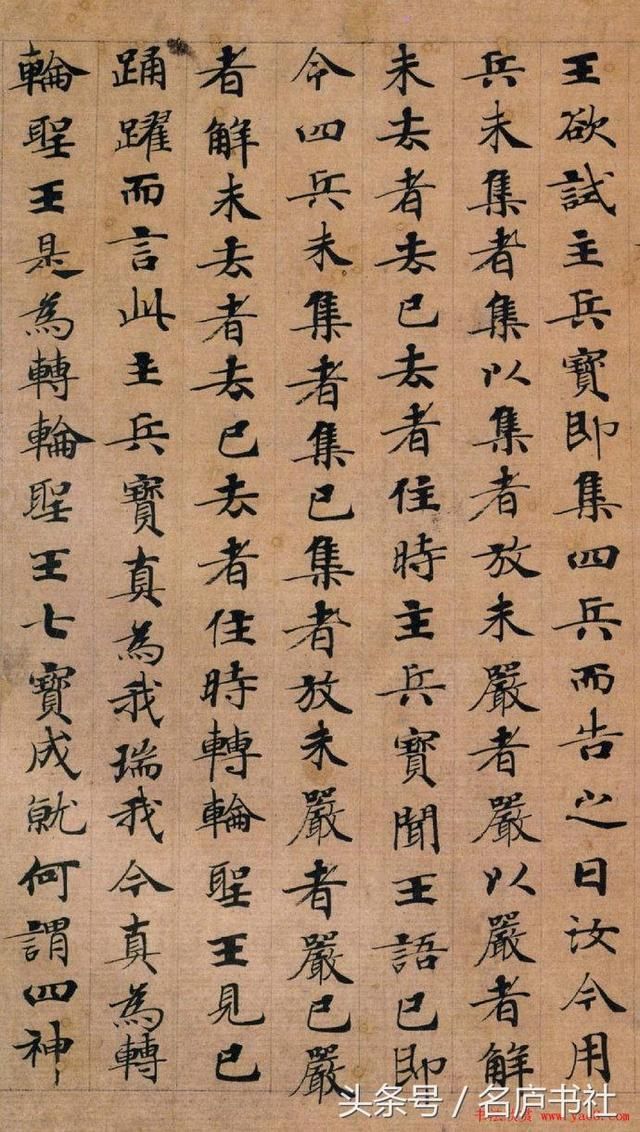 王欲試主兵寶即集四兵而告之曰汝今用
兵未集者集以集者放未嚴者嚴以嚴者解
未去者去已去者住時主兵寶聞王語已即
令四兵未集者集已集者放未嚴者嚴已嚴
者解未去者去已去者住時轉輪聖王見已
踊躍而言此主兵寶真為我瑞我今真為轉
輪聖王是為轉輪聖王七寶成就何謂四神
头条号／名庐书社
www.yac8.com